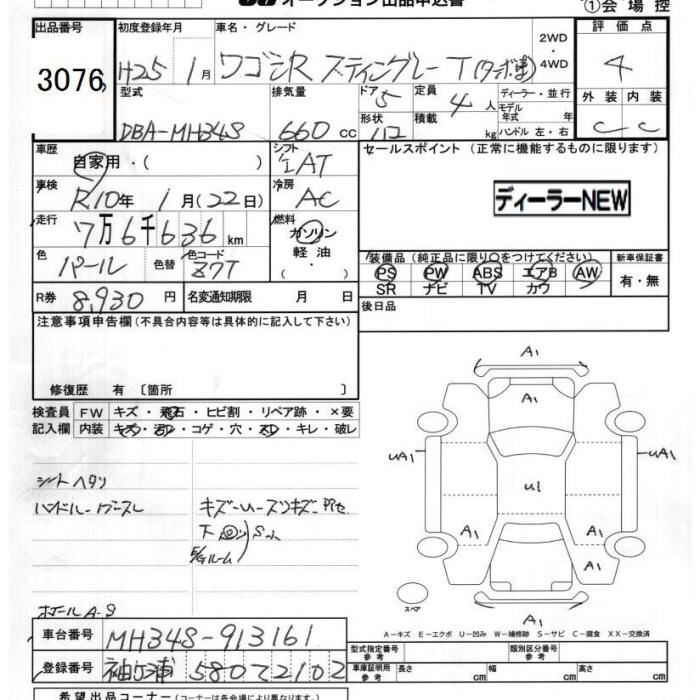 オークション出品申込書 ①会場控
出品番号 初度登録年月 車名・グレード 2WD・4WD 評価点
3076 H25 1月 ワゴンR スティングレー T(ターボ車) 4
型式 排気量 ドア 定員 ディーラー・並行 外装 内装
DBA-MH34S 660cc 5 4人 モデル年式 年 C C
形状 積載 kg ハンドル 左・右
車歴 シフト セールスポイント (正常に機能するものに限ります)
自家用・( ) IAT
車検 冷房 ディーラーNEW
R10年 1月(22日) AC
走行 燃料
7万6千636km ガソリン
軽油
色 色替 色コード 装備品(純正品に限り○をつけてください) 新車保証書
パール Z7T PS PW ABS エアB AW 有・無
SR ナビ TV カワ
R券 8,930円 名変通知期限 月 日 後日品
注意事項申告欄(不具合内容等は具体的に記入して下さい)
修復歴 有〔箇所 〕
検査員 FW キズ・飛石・ヒビ割・リペア跡・×要
記入欄 内装 キズ・汚レ・コゲ・穴・スレ・キレ・破レ
A1
A1
UA1 UA1
U1
A1 A1
A1
A1
シートヘタリ
ハンドル
下回りサビ
E/Gルーム
ホイールA-S
スペア
A-キズ E-エクボ U-凹み W-補修跡 S-サビ C-腐食 XX-交換済
車台番号 MH34S-913161 型式指定番号 参考 類別区分番号 参考
登録番号 袖ヶ浦 580 て 2102 車庫証明用 参考 長さ cm 幅 cm 高さ cm
希望出品コーナー(コーナーは各会場により異なります。)